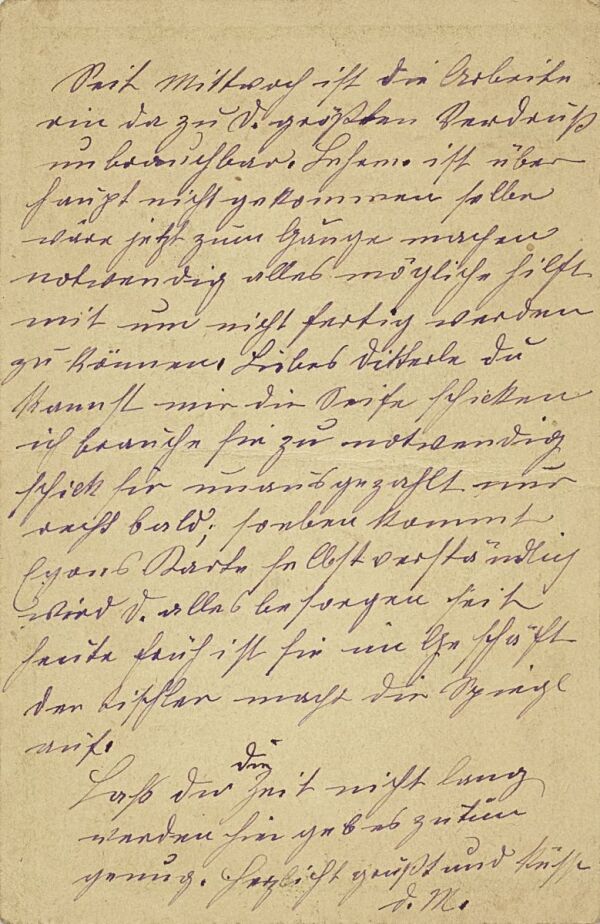 Seit Mittwoch ist die Arbeite
rin da zu D. größten Verdruß
unbrauchbar. ist über
haupt nicht gekommen selbe
wäre jetzt zum Gänge machen
notwendig alles mögliche hilft
mit um nicht fertig werden
zu können. Liebes Ditterle du
kannst mir die Seife schicken
ich brauche sie zu notwendig
schick sie unausgezahlt nur
recht bald; soeben kommt
Egons Karte selbstverständlich
wird D. alles besorgen seit
heute früh ist sie im Geschäft
der Tischler macht die Spiegl
auf.
Laß dir die Zeit nicht lang
werden hier geb es zutun
genug. Herzlichst grüßt und Küsse
d. M.